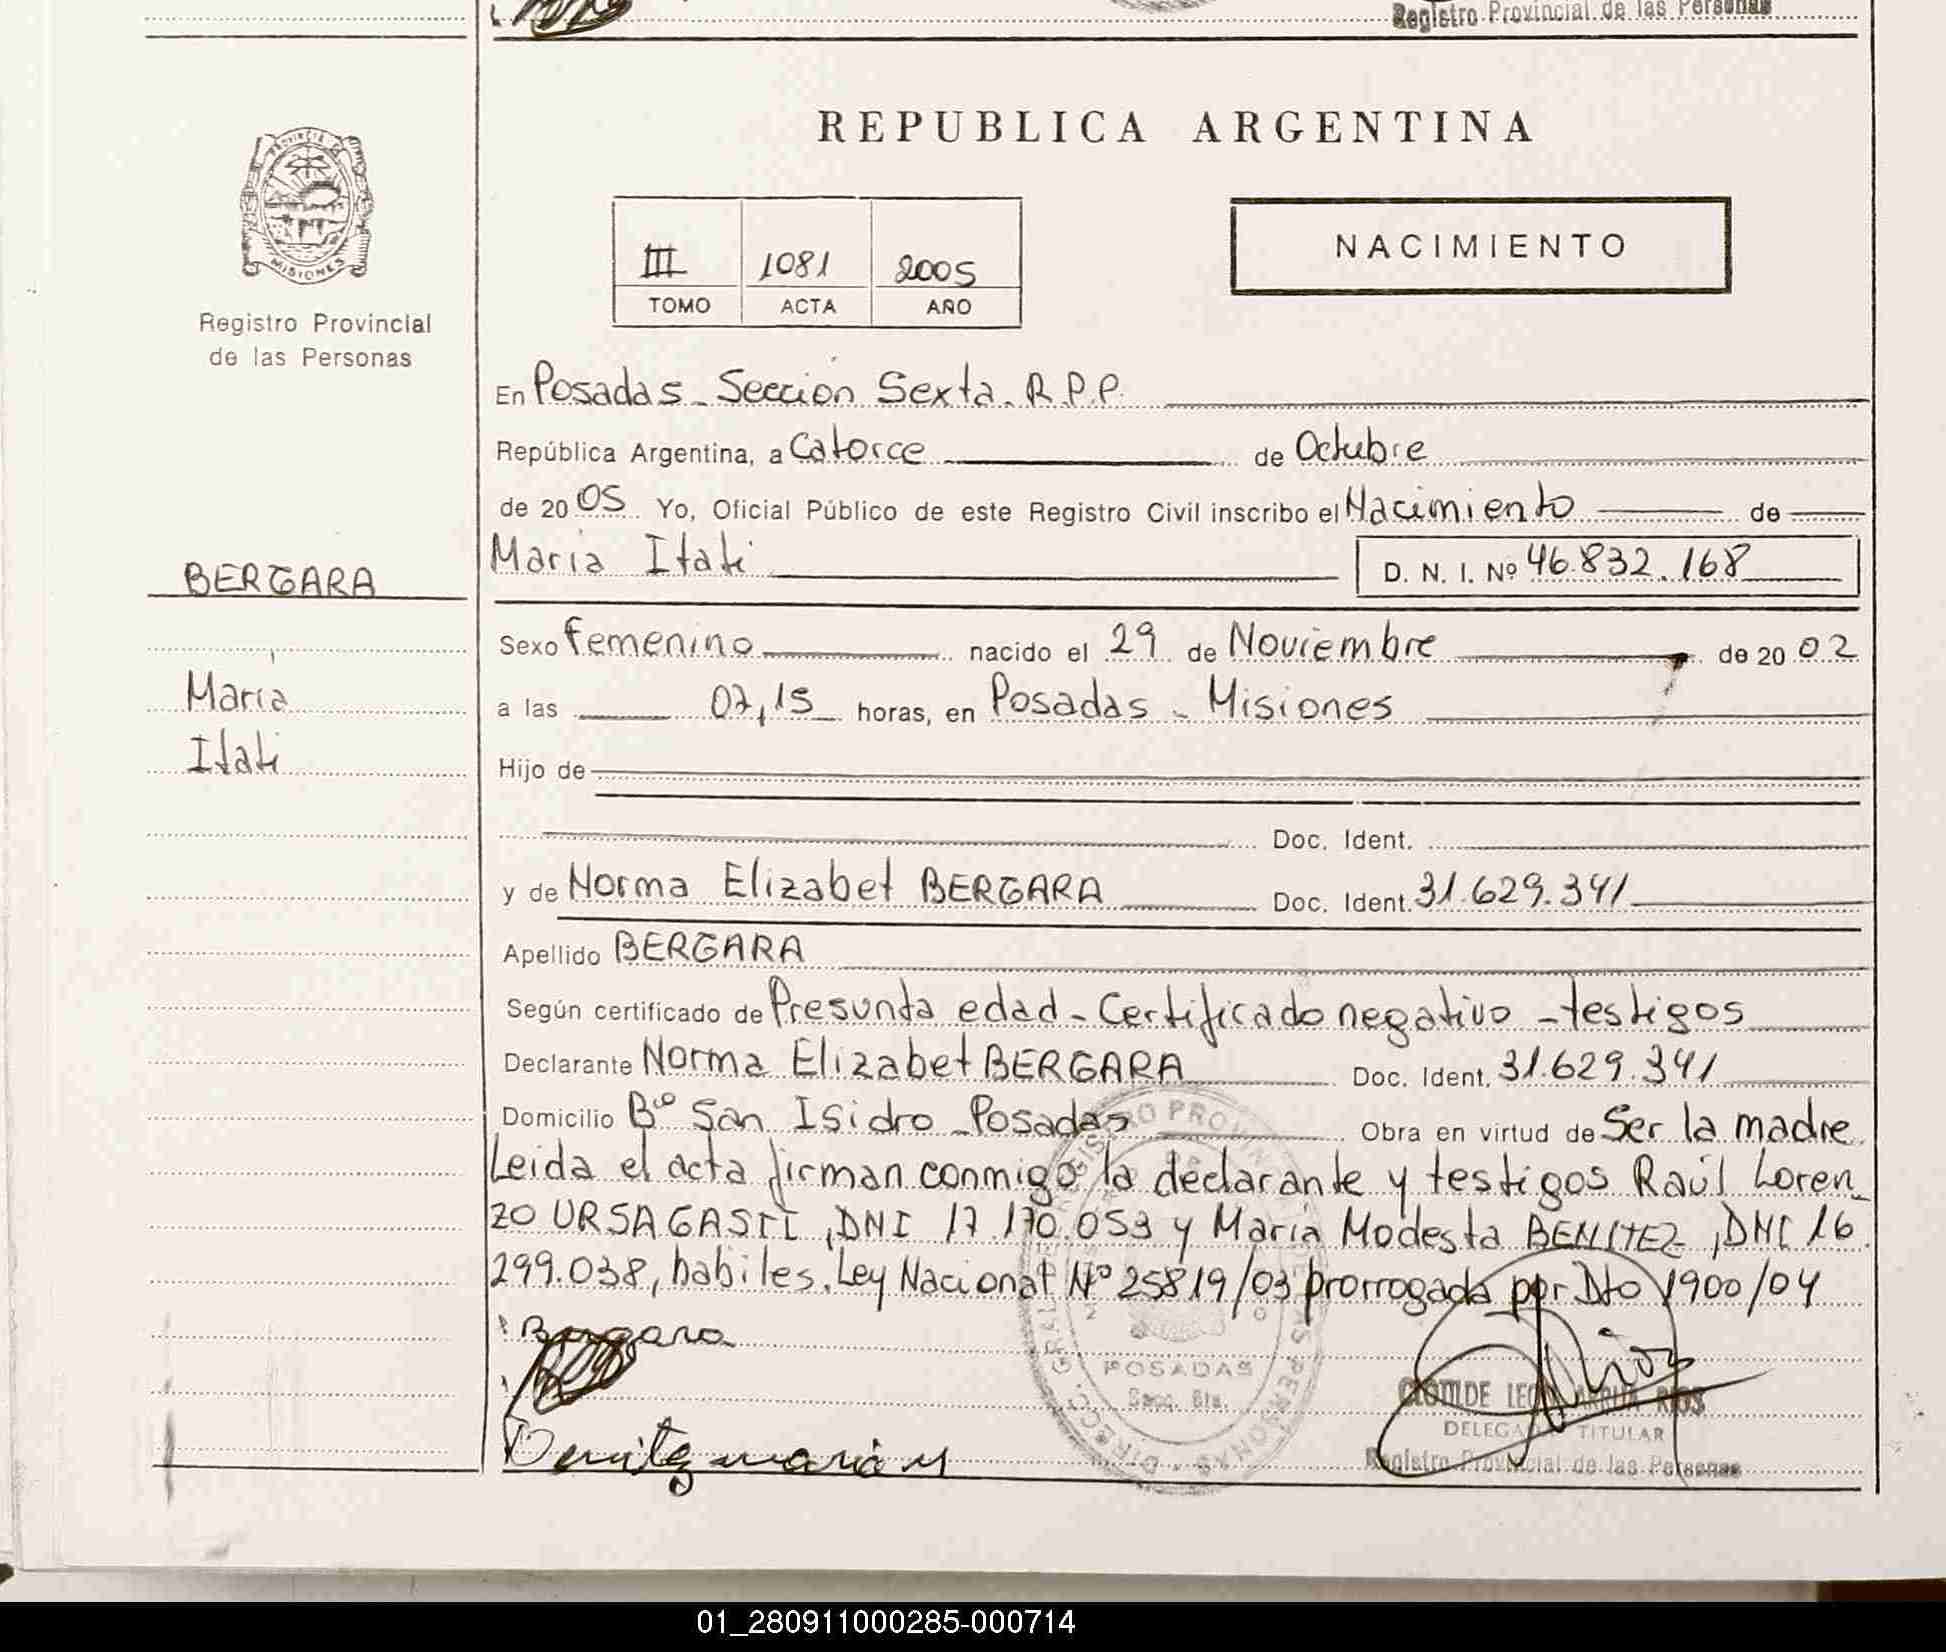 Registro Provincial de las Personas
REPUBLICA ARGENTINA
PROVINCIA DE
MISIONES
Registro Provincial
de las Personas
III 1081 2005
TOMO ACTA AÑO
NACIMIENTO
En Posadas - Sección Sexta. R.P.P.
República Argentina, a Catorce de Octubre
de 2005 Yo, Oficial Público de este Registro Civil inscribo el Nacimiento de
BERGARA
María Itati D. N. I. Nº 46.832.168
Sexo Femenino nacido el 29 de Noviembre de 2002
María
a las 07,15 horas, en Posadas - Misiones
Itati
Hijo de
Doc. Ident.
y de Norma Elizabet BERGARA Doc. Ident. 31.629.341
Apellido BERGARA
Según certificado de Presunta edad - Certificado negativo - testigos
Declarante Norma Elizabet BERGARA Doc. Ident. 31.629.341
Domicilio Bº San Isidro - Posadas Obra en virtud de Ser la madre.
Leida el acta firman conmigo la declarante y testigos Raúl Loren_
zo URSAGASTI, DNI 17.170.053 y María Modesta BENITEZ, DNI 16.
299.038, habiles. Ley Nacional Nº 25819/03 prorrogada por Dto 1900/04
Bergara
POSADAS
Secc. 6ta.
RIOS
DELEGADA TITULAR
Registro Provincial de las Personas
Benitez maria M
01_280911000285-000714